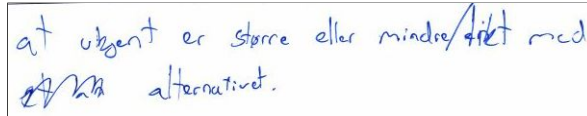 at utgent er større eller mindre/likt med
alternativet.